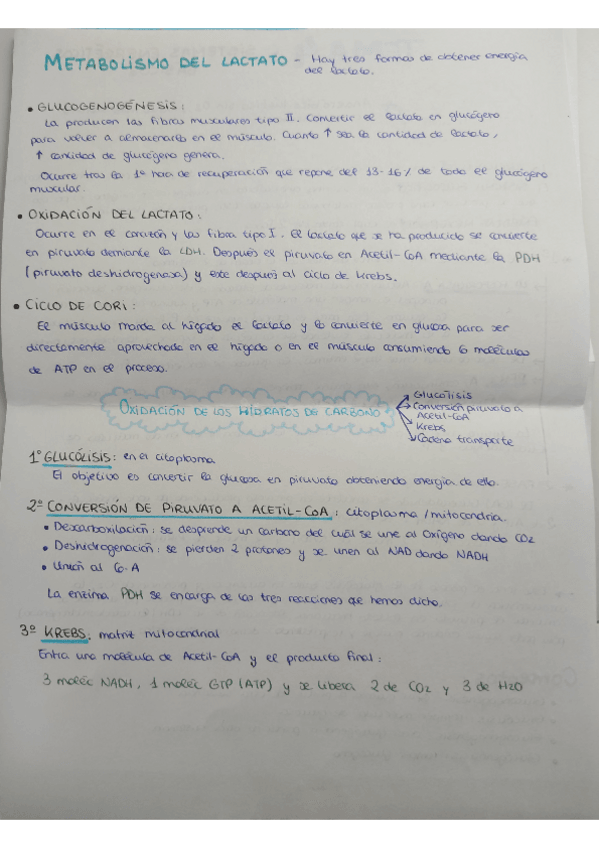 METABOLISMO DEL LACTATO - Hay tres formas de obtener energia
del lactato.
• GLUCOGENOGÉNESIS:
La producen las fibras musculares tipo II. Convertir el lactato en glucógeno
para volver a almacenarlo en el músculo. Cuanto ↑ sea la cantidad de lactato,
↑ cantidad de glucógeno genera.
Ocurre tras la 1ª hora de recuperación que repone del 13-16% de todo el glucógeno
muscular.
• OXIDACIÓN DEL LACTATO:
Ocurre en el corazón y las fibra tipo I. El lactato que se ha producido se convierte
en piruvato demiante la LDH. Después el piruvato en Acetil-CoA mediante la PDH
(piruvato deshidrogenasa) y este después al ciclo de Krebs.
• CICLO DE CORI:
El músculo manda al hígado el lactato y lo convierte en glucosa para ser
directamente aprovechada en el hígado o en el músculo consumiendo 6 moléculas
de ATP en el proceso.
OXIDACIÓN DE LOS HIDRATOS DE CARBONO
Glucólisis
Conversión piruvato a
Acetil-CoA
Krebs
Cadena transporte
1º GLUCÓLISIS: en el citoplasma
El objetivo es convertir la glucosa en piruvato obteniendo energia de ello.
2º CONVERSIÓN DE PIRUVATO A ACETIL-COA: citoplasma/mitocondria.
• Descarboxilación: se desprende un carbono del cuál se une al Oxígeno dando CO2
• Deshidrogenación: se pierden 2 protones y se unen al NAD dando NADH
• Unión al Co.A
La enzima PDH se encarga de las tres reacciones que hemos dicho.
3º KREBS: matriz mitocondrial
Entra una molécula de Acetil-CoA y el producto final:
3 moléc NADH, 1 moléc GTP (ATP) y se libera 2 de CO2 y 3 de H2O